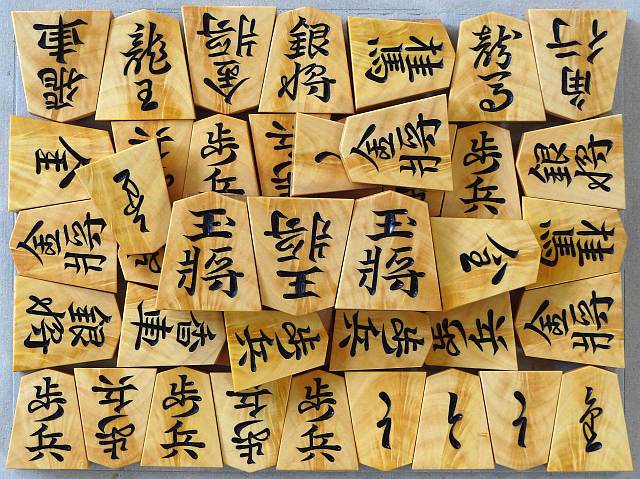 香車
龍王
金将
銀将
桂馬
龍馬
香車
金
歩兵
金将
歩兵
銀将
金将
王将
玉将
王将
桂馬
銀将
香車
歩兵
歩兵
歩兵
金将
歩兵
歩兵
歩兵
歩兵
歩兵
と
と
と